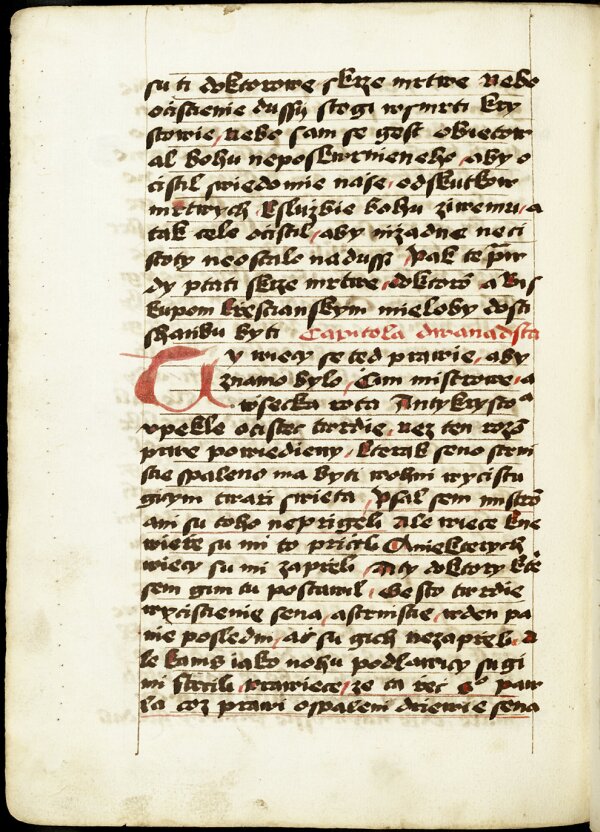 su ti doktorowe skrze mrtwe nebo
ociscienie dussy stogi wsmrti kry
stowie nebo sam se gest obietow
al bohu neposkwrnieneho aby o
cistil swiedomie nase odskutkow
mrtwych kslużbie bohu ziwemu a
tak cele ocistil aby nizadne neci
stoty neostalo nadussi Pak te
dy ptati skrze mrtwe doktoro a bis
kupom krescianskym mieloby dosti
byti Capitola dwanadsta
y wiecy se ted prawie aby
znamo bylo Cim mistrowe a
wsecka rota Antykrysto
vpekle ocistec twrdie nez ten
powiedieny kterak seno strni
stie spaleno ma byti wohni wyciscu
gicym twari swieta Psal sem mistro
ani su toho neprigeli Ale wiece
su mi to Aniekterych
wiecy su mi zapreli Aty doktory kte
sem gim tu postawil Gesto twrdie
wycistienie sena astrnistie wden pa
nie posledni ac su gich nezapreli a
le kams iako nohu podlawicy su gi
mi strcili prawiece ze ta rec paw
la coz prawi ospaleni drziewie sena